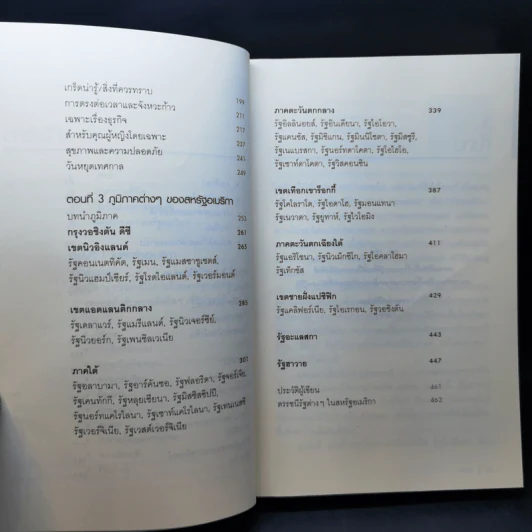 เกร็ดน่ารู้/สิ่งที่ควรทราบ 195
การตรงต่อเวลาและจังหวะก้าว 211
เฉพาะเรื่องธุรกิจ 217
สำหรับคุณผู้หญิงโดยเฉพาะ 231
สุขภาพและความปลอดภัย 245
วันหยุดเทศกาล 249
ตอนที่ 3 ภูมิภาคต่างๆ ของสหรัฐอเมริกา
บทนำภูมิภาค 253
กรุงวอชิงตัน ดีซี 261
เขตนิวอิงแลนด์ 265
รัฐคอนเนตทิคัต, รัฐเมน, รัฐแมสซาชูเซตส์,
รัฐนิวแฮมป์เชียร์, รัฐโรดไอแลนด์, รัฐเวอร์มอนต์
เขตแอตแลนติกกลาง 285
รัฐเดลาแวร์, รัฐแมรีแลนด์, รัฐนิวเจอร์ซีย์,
รัฐนิวยอร์ก, รัฐเพนซิลเวเนีย
ภาคใต้ 301
รัฐอลาบามา, รัฐอาร์คันซอ, รัฐฟลอริดา, รัฐจอร์เจีย,
รัฐเคนทักกี, รัฐหลุยเซียนา, รัฐมิสซิสซิปปี,
รัฐนอร์ทแคโรไลนา, รัฐเซาท์แคโรไลนา, รัฐเทนเนสซี
รัฐเวอร์จิเนีย, รัฐเวสต์เวอร์จิเนีย
ภาคตะวันตกกลาง 339
รัฐอิลลินอยส์, รัฐอินเดียนา, รัฐไอโอวา,
รัฐแคนซัส, รัฐมิชิแกน, รัฐมินนิโซตา, รัฐมิสซูรี,
รัฐเนแบรสกา, รัฐนอร์ทดาโคตา, รัฐโอไฮโอ,
รัฐเซาท์ดาโคตา, รัฐวิสคอนซิน
เขตเทือกเขาร็อกกี้ 387
รัฐโคโลราโด, รัฐไอดาโฮ, รัฐมอนแทนา
รัฐเนวาดา, รัฐยูทาห์, รัฐไวโอมิง
ภาคตะวันตกเฉียงใต้ 411
รัฐแอริโซนา, รัฐนิวเม็กซิโก, รัฐโอคลาโฮมา
รัฐเท็กซัส
เขตชายฝั่งแปซิฟิก 429
รัฐแคลิฟอร์เนีย, รัฐโอเรกอน, รัฐวอชิงตัน
รัฐอะแลสกา 443
รัฐฮาวาย 447
ประวัติผู้เขียน 461
ดรรชนีรัฐต่างๆ ในสหรัฐอเมริกา 462